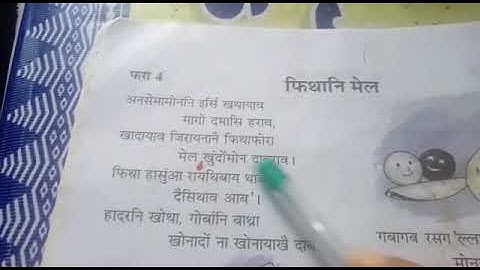 फरा 4
फिथानि मेल
अनसेमामोननि इसिं खथायाव
मागो दमासि हराव,
खादायाव जिरायनानै फिथाफोरा
मेल खुंदोंमोन
फिथा हासुंआ रायथिबाय
दैसिथाव आब'।
हादरनि खोथा, गोबांनि बाथ्रा
खोनादों ना खोनायाखै दाब
गबागब रसग'ल्ल
मोन